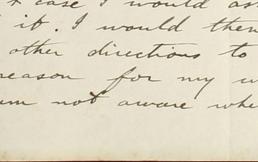 case I would as
it. I would then
other directions to
reason for my w
am not aware whe